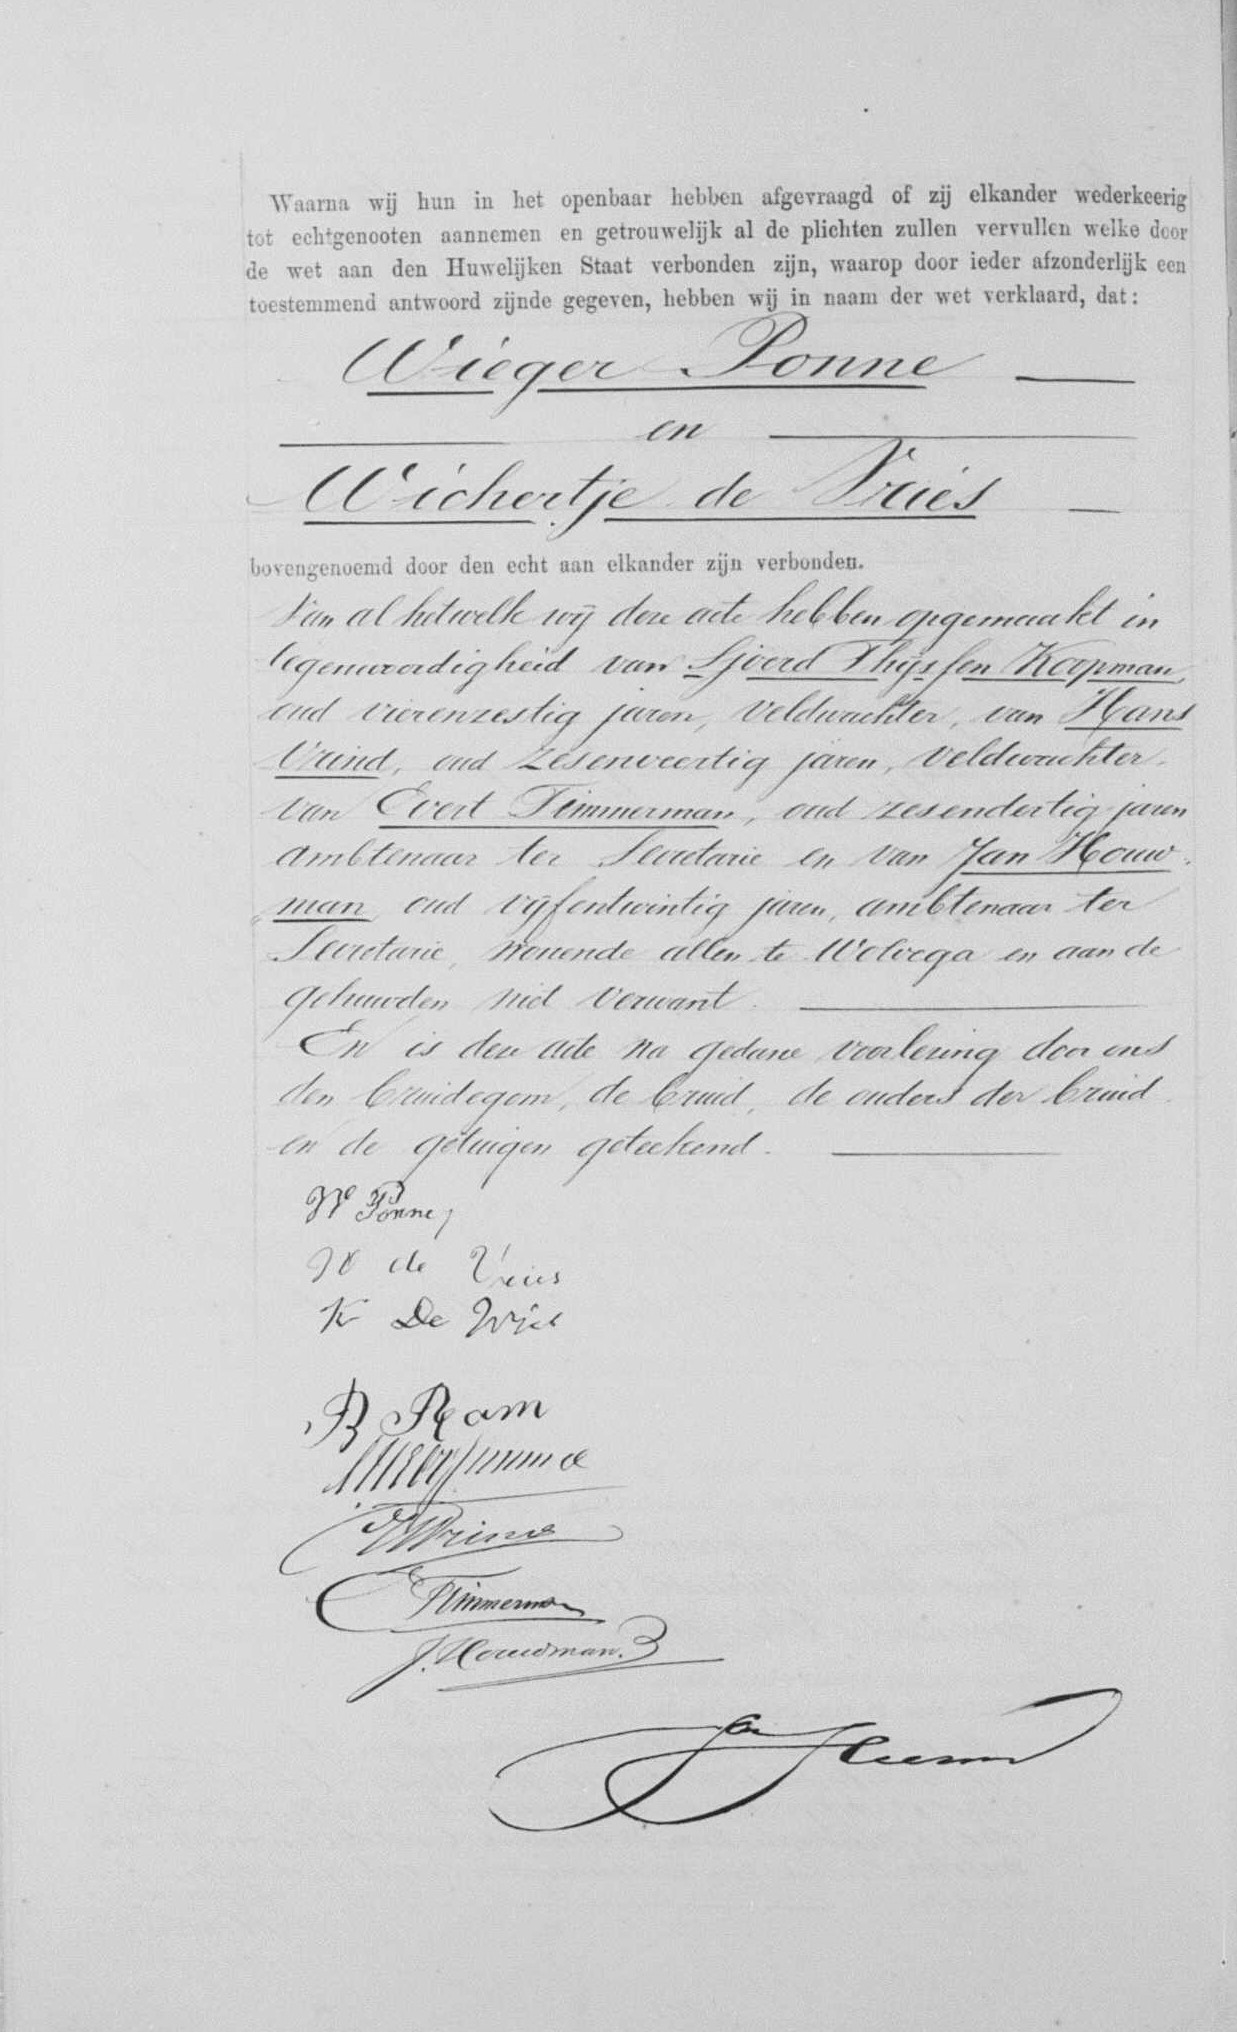 Waarna wij hun in het openbaar hebben afgevraagd of zij elkander wederkeerig
tot echtgenooten aannemen en getrouwelijk al de plichten zullen vervullen welke door
de wet aan den Huwelijken Staat verbonden zijn, waarop door ieder afzonderlijk een
toestemmend antwoord zijnde gegeven, hebben wij in naam der wet verklaard, dat:
Wieger Ponne
en
Wichertje de Vries
bovengenoemd door den echt aan elkander zijn verbonden.
Van al hetwelk wij deze acte hebben opgemaakt in
tegenwoordigheid van Sjoerd Thijssen Koopman,
oud vierenzestig jaren, veldwachter, van Hans
Vrind, oud zesenveertig jaren, veldwachter.
van Evert Timmerman, oud zesendertig jaren
ambtenaar ter Secretarie en van Jan Houw-
man oud vijfentwintig jaren, ambtenaar ter
Secretarie, wonende allen te Wolvega en aan de
gehuwden niet verwant.
En is deze acte na gedane voorlezing door ons
den bruidegom, de bruid, de ouders der bruid
en de getuigen geteekend.
W Ponne,
W de Vries
K De Vries
R Ram
H Vrind
E Timmerman
J. Houwman.